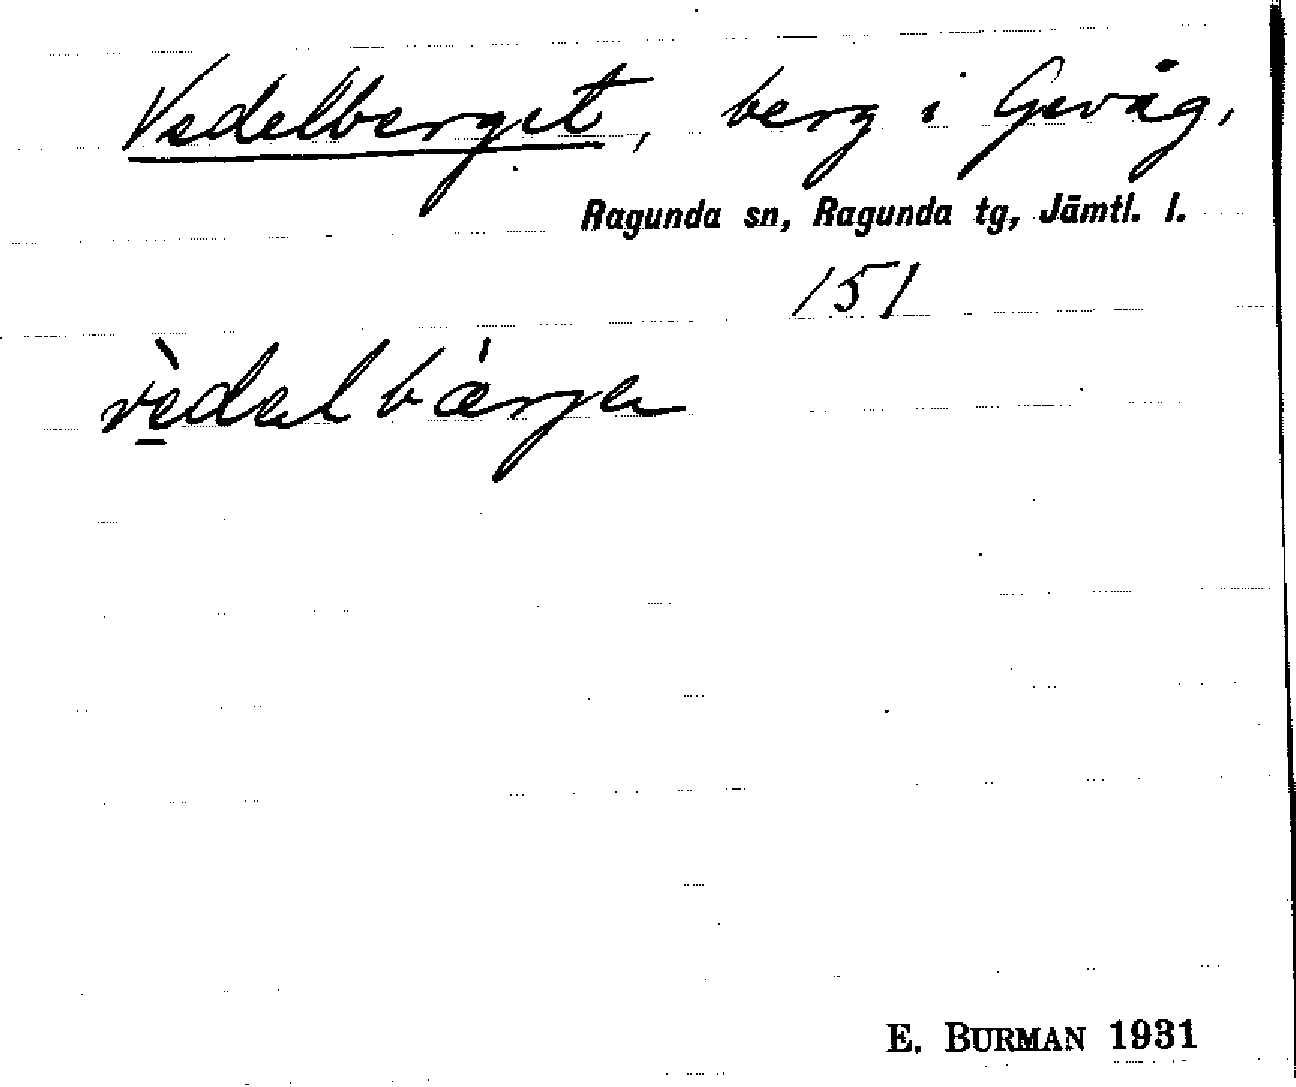 Vedelberget, berg i Gevåg,
Ragunda sn, Ragunda tg, Jämtl. l.
151
vè̱delbǽrje
E. BURMAN 1931